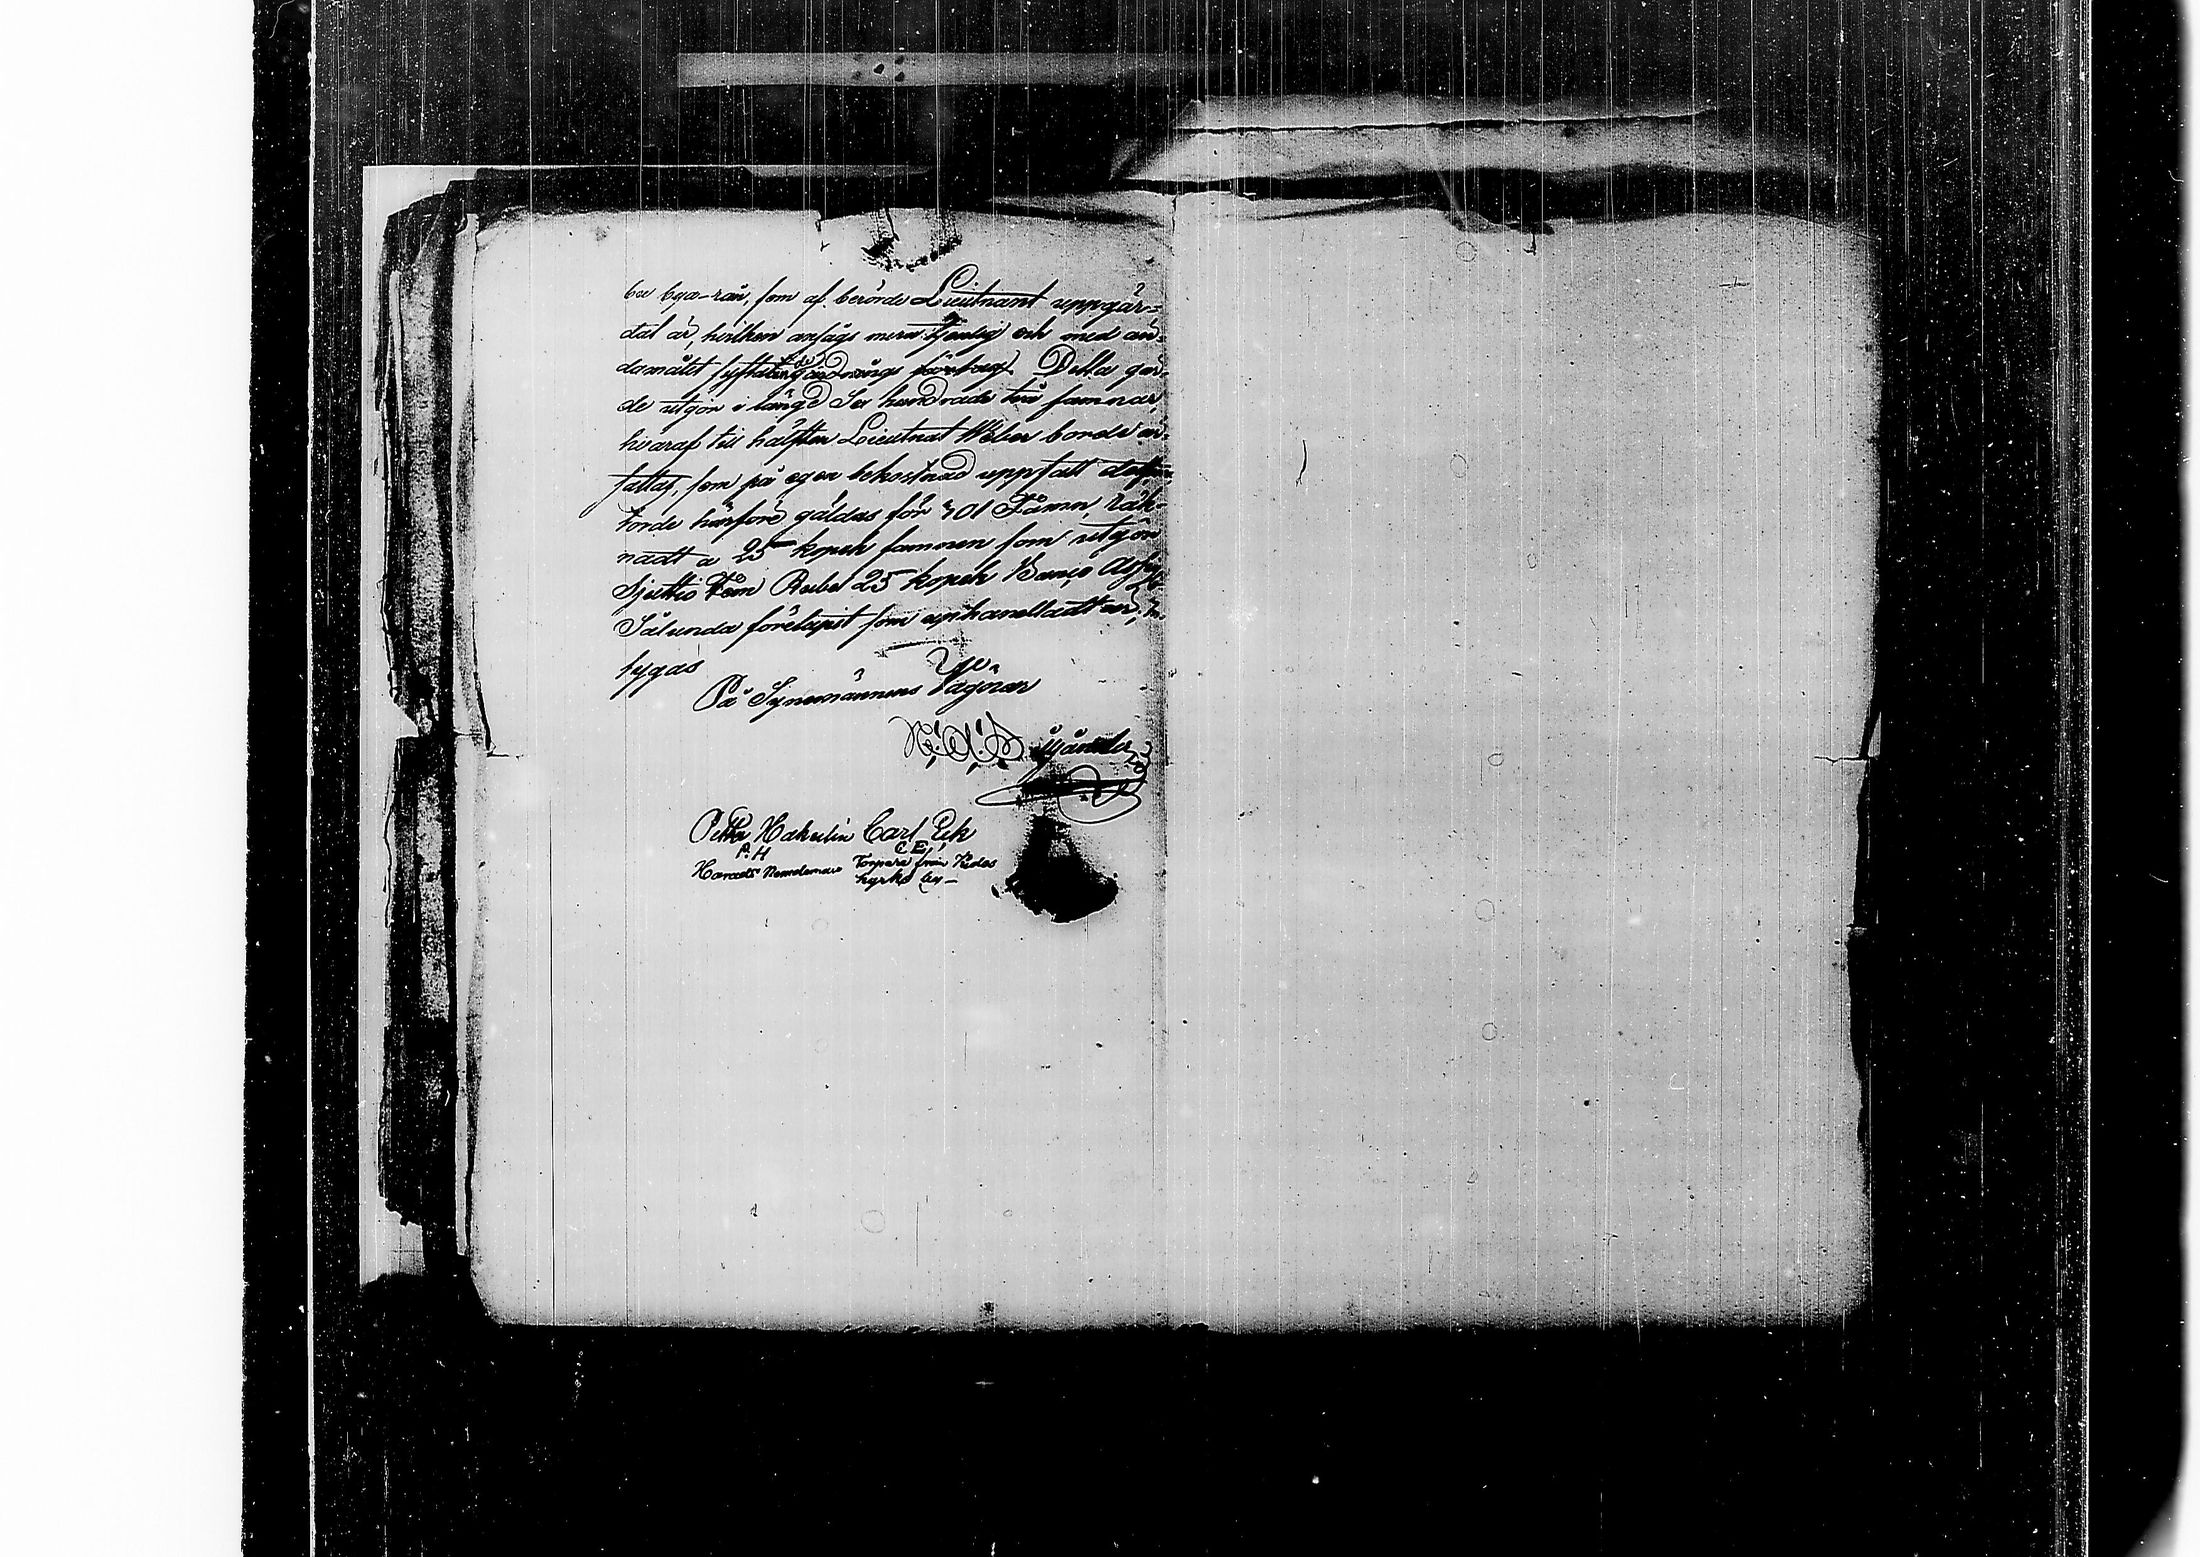 bu bya-rån, som af berörde Lieutnant uppgär-
dat är, hvilken ansågs mera tjenlig och med än-
damålet syftande gärdnings företag. Detta gär-
de utgör i längd Sex hundrade två famnar,
hvaraf till hälften Lieutnat Weber borde er-
sättas, som på egen bekostnad uppsatt det,
torde härföre gäldas för 301 Famn, räk-
nadt a 25 kopek famnen som utgör
Sjuttio fem Rubel 25 kopek Banco Assig.
Sålunda förelupit som aphandladt är, be-
tygas
På Synemännens Vägnar
Petter Hakulin Carl Eck
P. H C E
Härads Nämndeman Torpare från
kyrko by